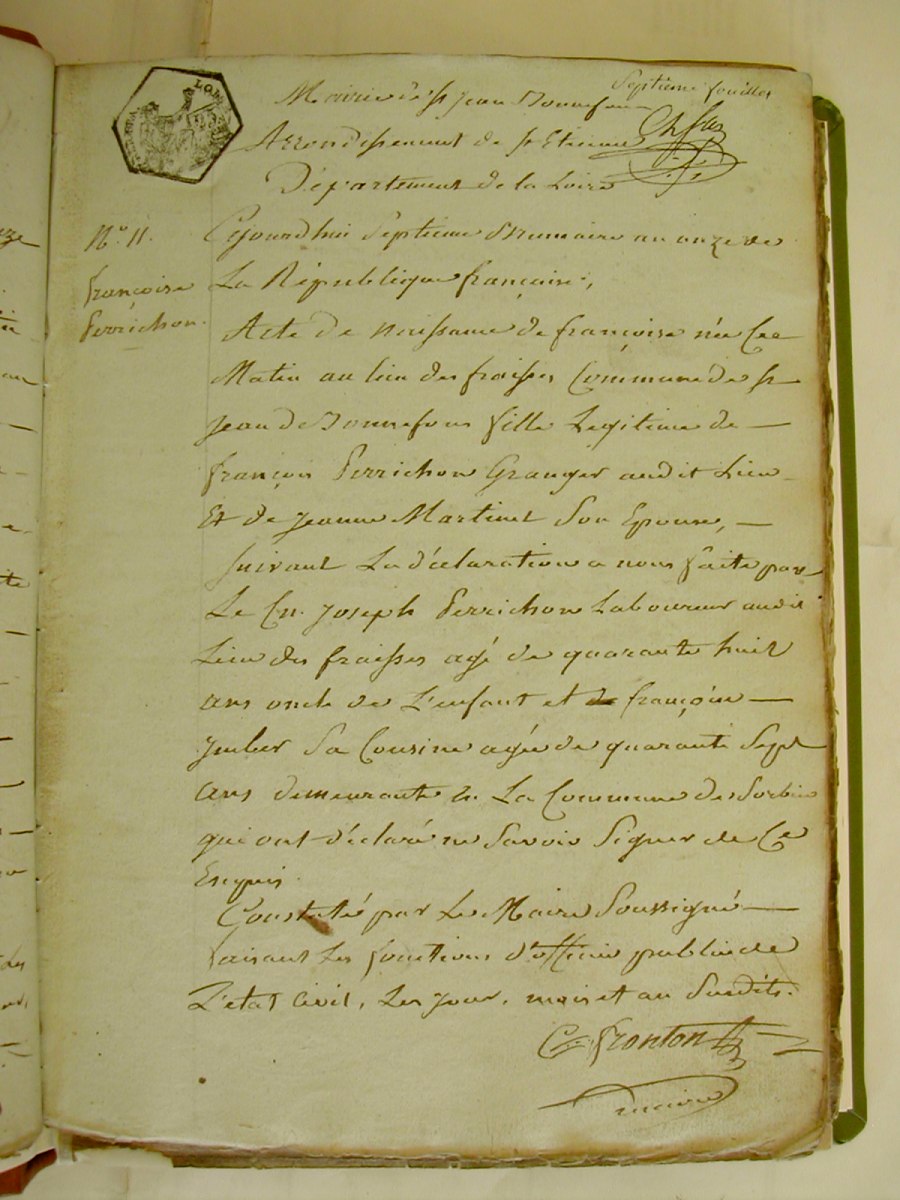 Septieme feuillet
Mairie de St Jean Bonnefon
Arrondissement de St Etienne
Département de la Loire
LOI
N.o 11.
françoise
Perrichon.
Cejourdhui Septieme Brumaire an onze de
La République française,
Acte de Naissance de françoise née Ce
Matin au lieu des fraisses Commune de St
Jean de Bonnefons fille Legitime de —
françois Perrichon Granger audit Lieu
Et de Jeanne Martinet Son Epouse, —
Suivant La déclaration a nous faite par
Le Cn. Joseph Perrichon Laboureur audit
Lieu des fraisses agé de quarante huit
ans oncle de L'enfant et de françoise —
Imber Sa Cousine agée de quarante Sept
ans demeurante en La Commune de Sorbier
qui ont déclaré ne Savoir Signer de Ce
Enquis.
Constaté par Le Maire Soussigné —
faisant Les fonctions d'officier public de
L'etat Civil, Les jour, mois et an Susdits.
fronton
maire